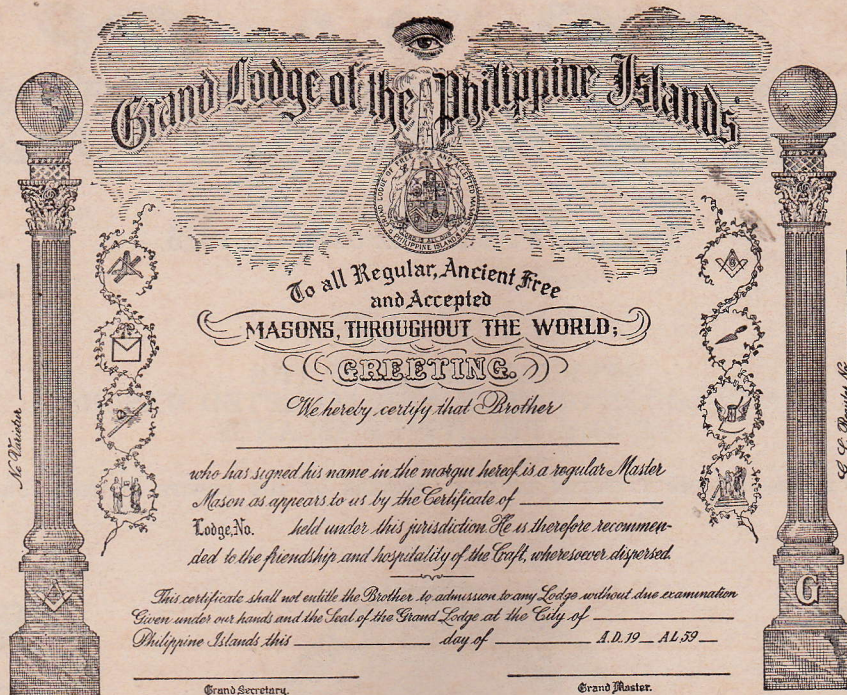 Grand Lodge of the Philippine Islands
To all Regular, Ancient Free
and Accepted
MASONS, THROUGHOUT THE WORLD;
GREETING.
We hereby certify that Brother
who has signed his name in the margin hereof, is a regular Master
Mason as appears to us by the Certificate of
Lodge, No. held under this jurisdiction. He is therefore recommen-
ded to the friendship and hospitality of the Craft, wheresoever dispersed.
This certificate shall not entitle the Brother to admission to any Lodge without due examination
Given under our hands and the Seal of the Grand Lodge at the City of
Philippine Islands this day of A.D. 19 A.L. 59
Grand Secretary.
Grand Master.
Ne Varietur
G